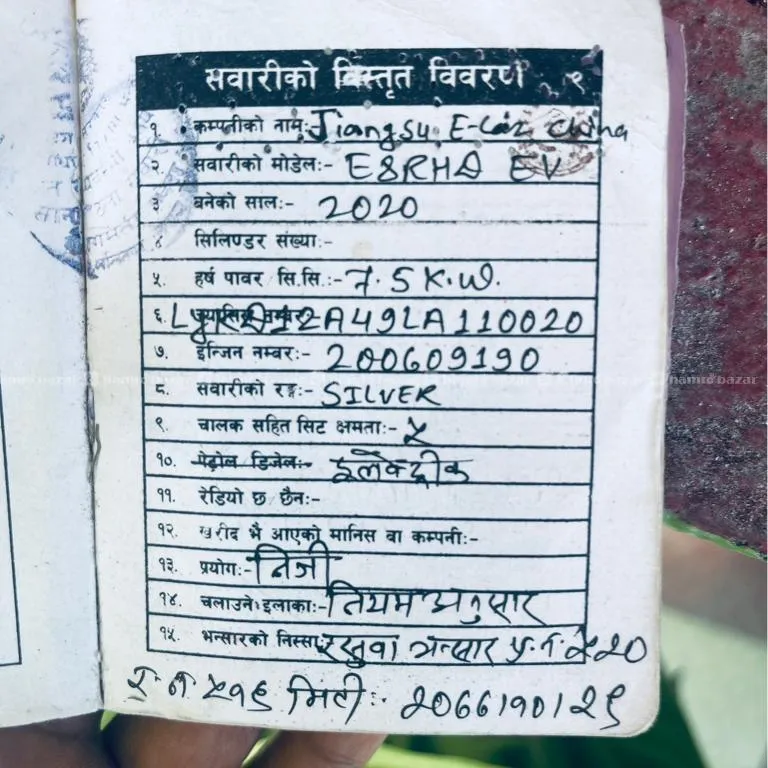 सवारीको विस्तृत विवरण १
१. कम्पनीको नाम:- Jiangsu E-Car China
२. सवारीको मोडेल:- E8RHD EV
३. बनेको साल:- 2020
४. सिलिण्डर संख्या:-
५. हर्ष पावर सि.सि.:- 7.5 K.W.
६. 12A49LA110020
७. इन्जिन नम्बर:- 200609190
८. सवारीको रङ्ग:- SILVER
९. चालक सहित सिट क्षमता:- ५
१०. पेट्रोल डिजेल:- इलेक्ट्रीक
११. रेडियो छ छैन:-
१२. खरीद भै आएको मानिस वा कम्पनी:-
१३. प्रयोग:- निजी
१४. चलाउने इलाका:- नियम अनुसार
१५. भन्सारको निस्सा रसुवा भन्सार प्र. न. ५२०
र न ५१९ मिती:- २०७७।१०।२९
hamro bazar